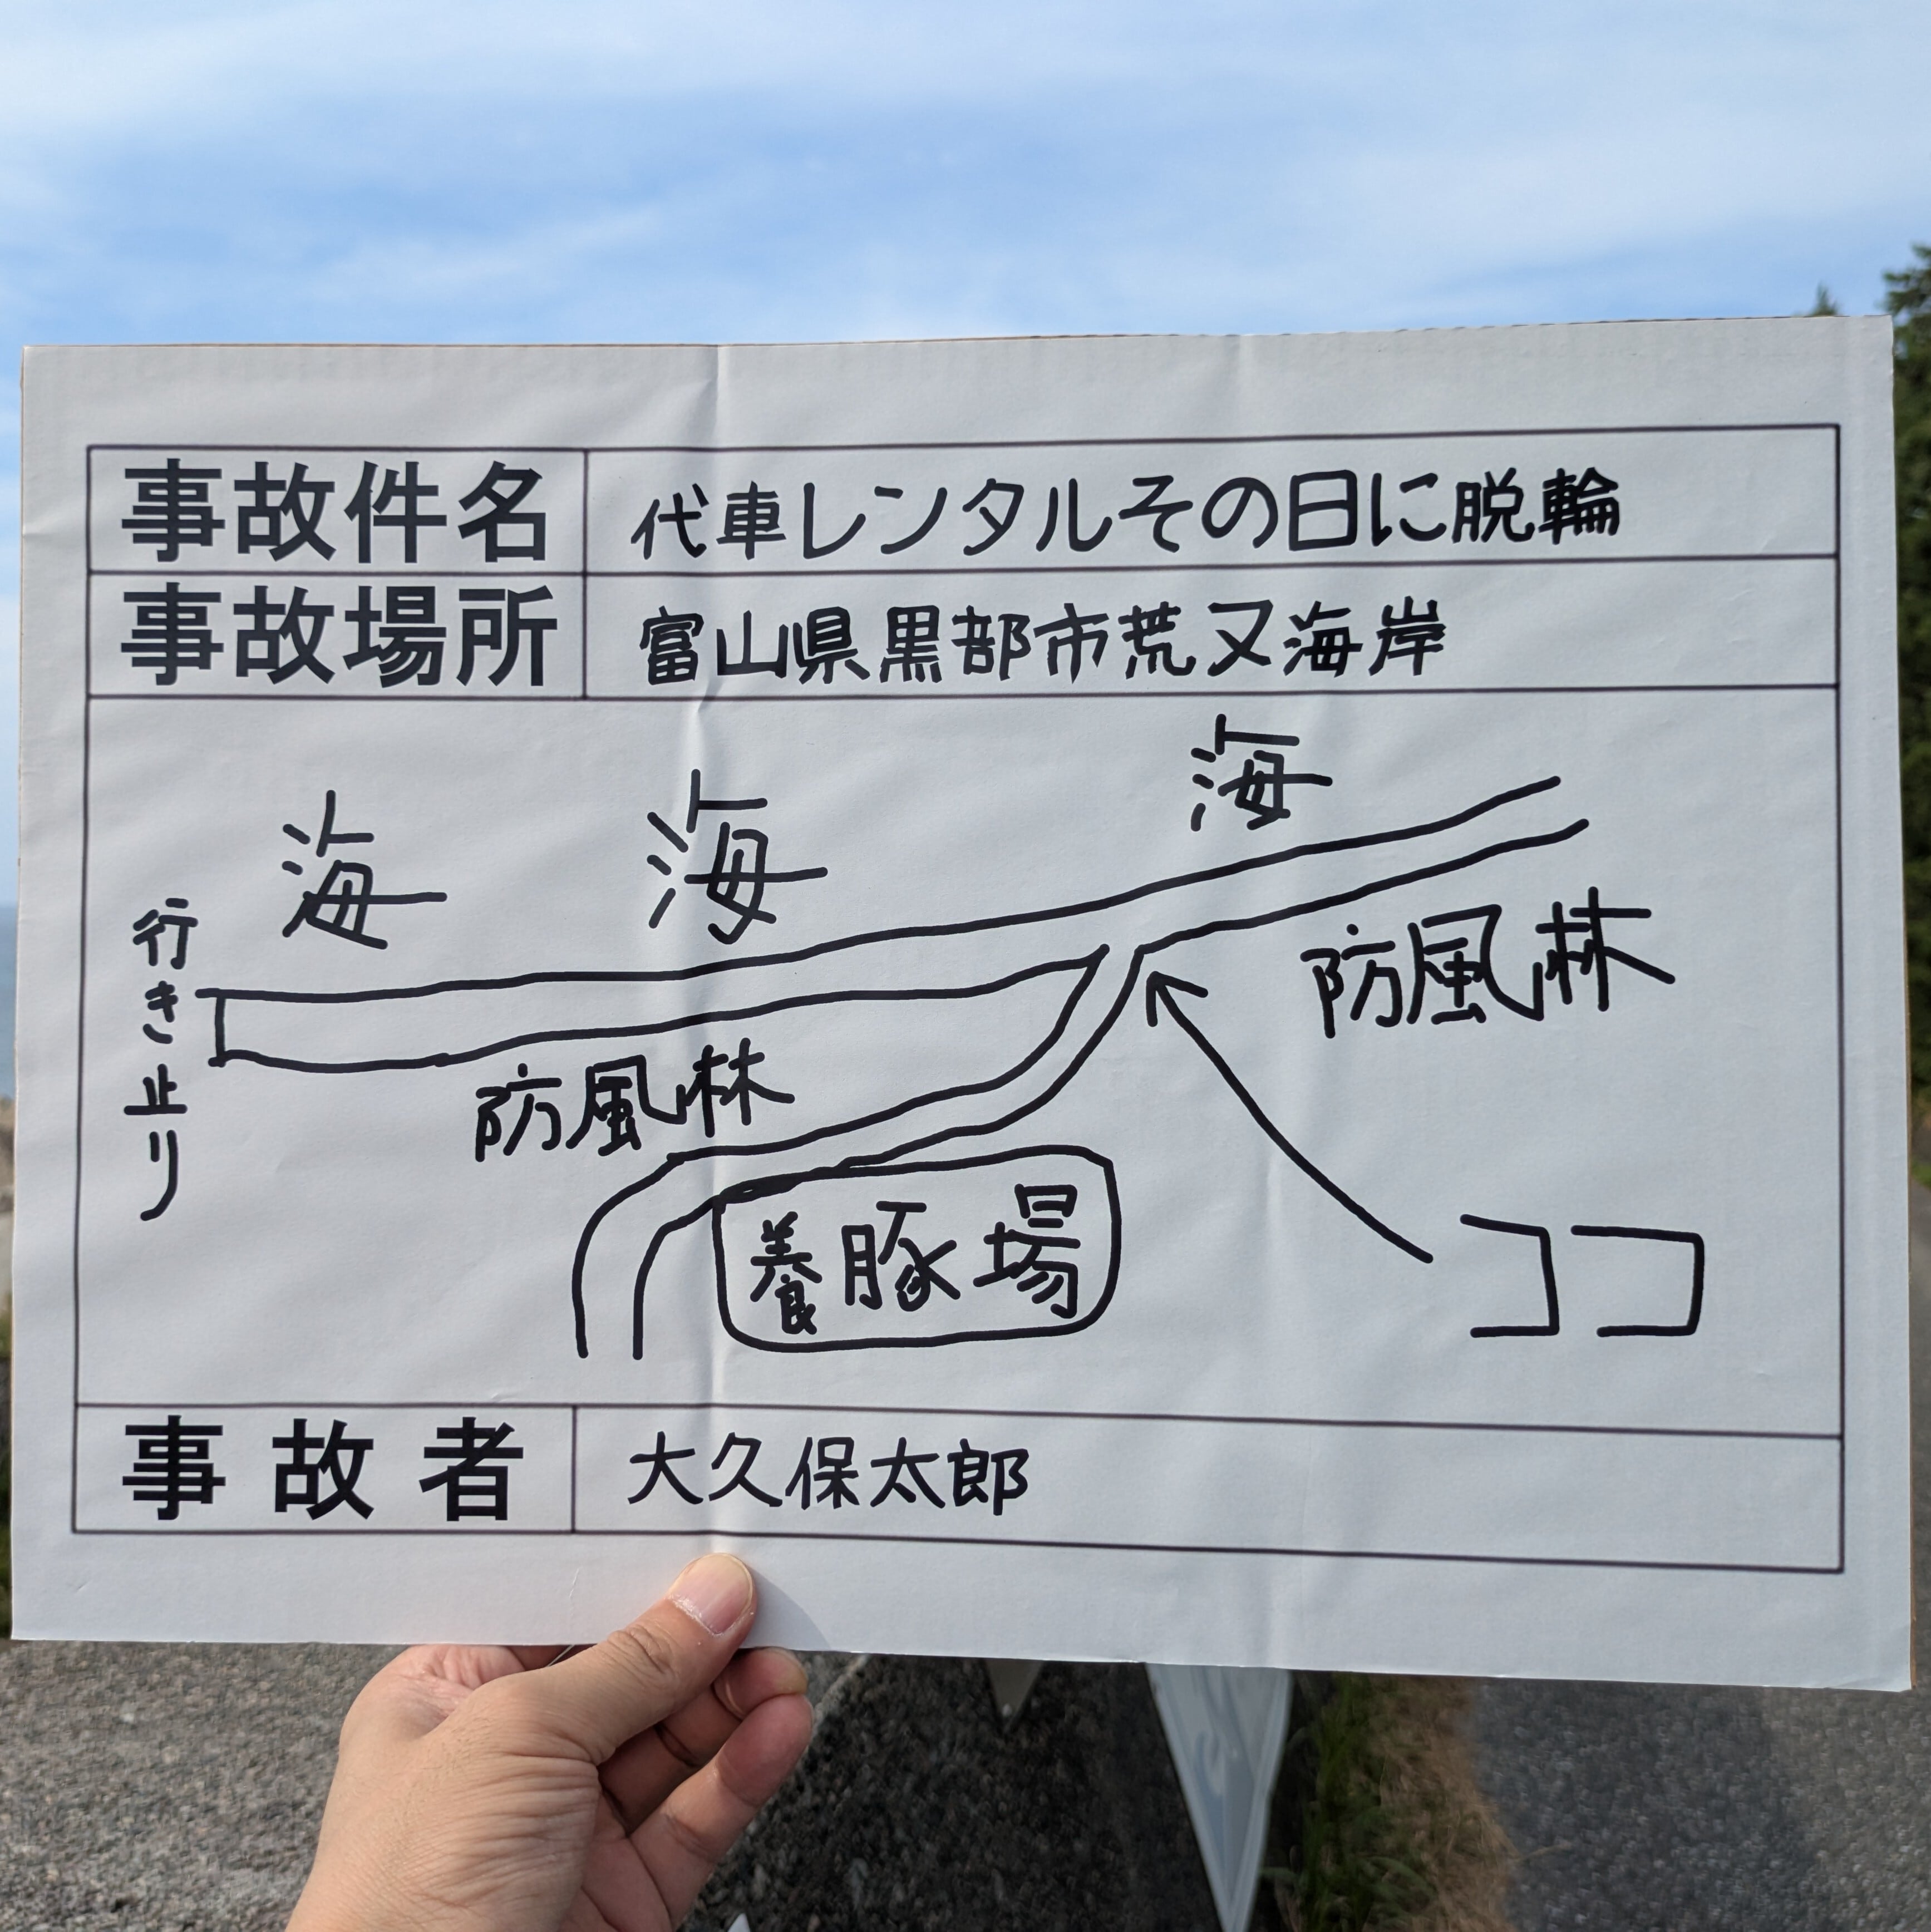 事故件名 代車レンタルその日に脱輪
事故場所 富山県黒部市荒又海岸
海 海 海
行き止り
防風林
防風林
養豚場
ココ
事故者 大久保太郎